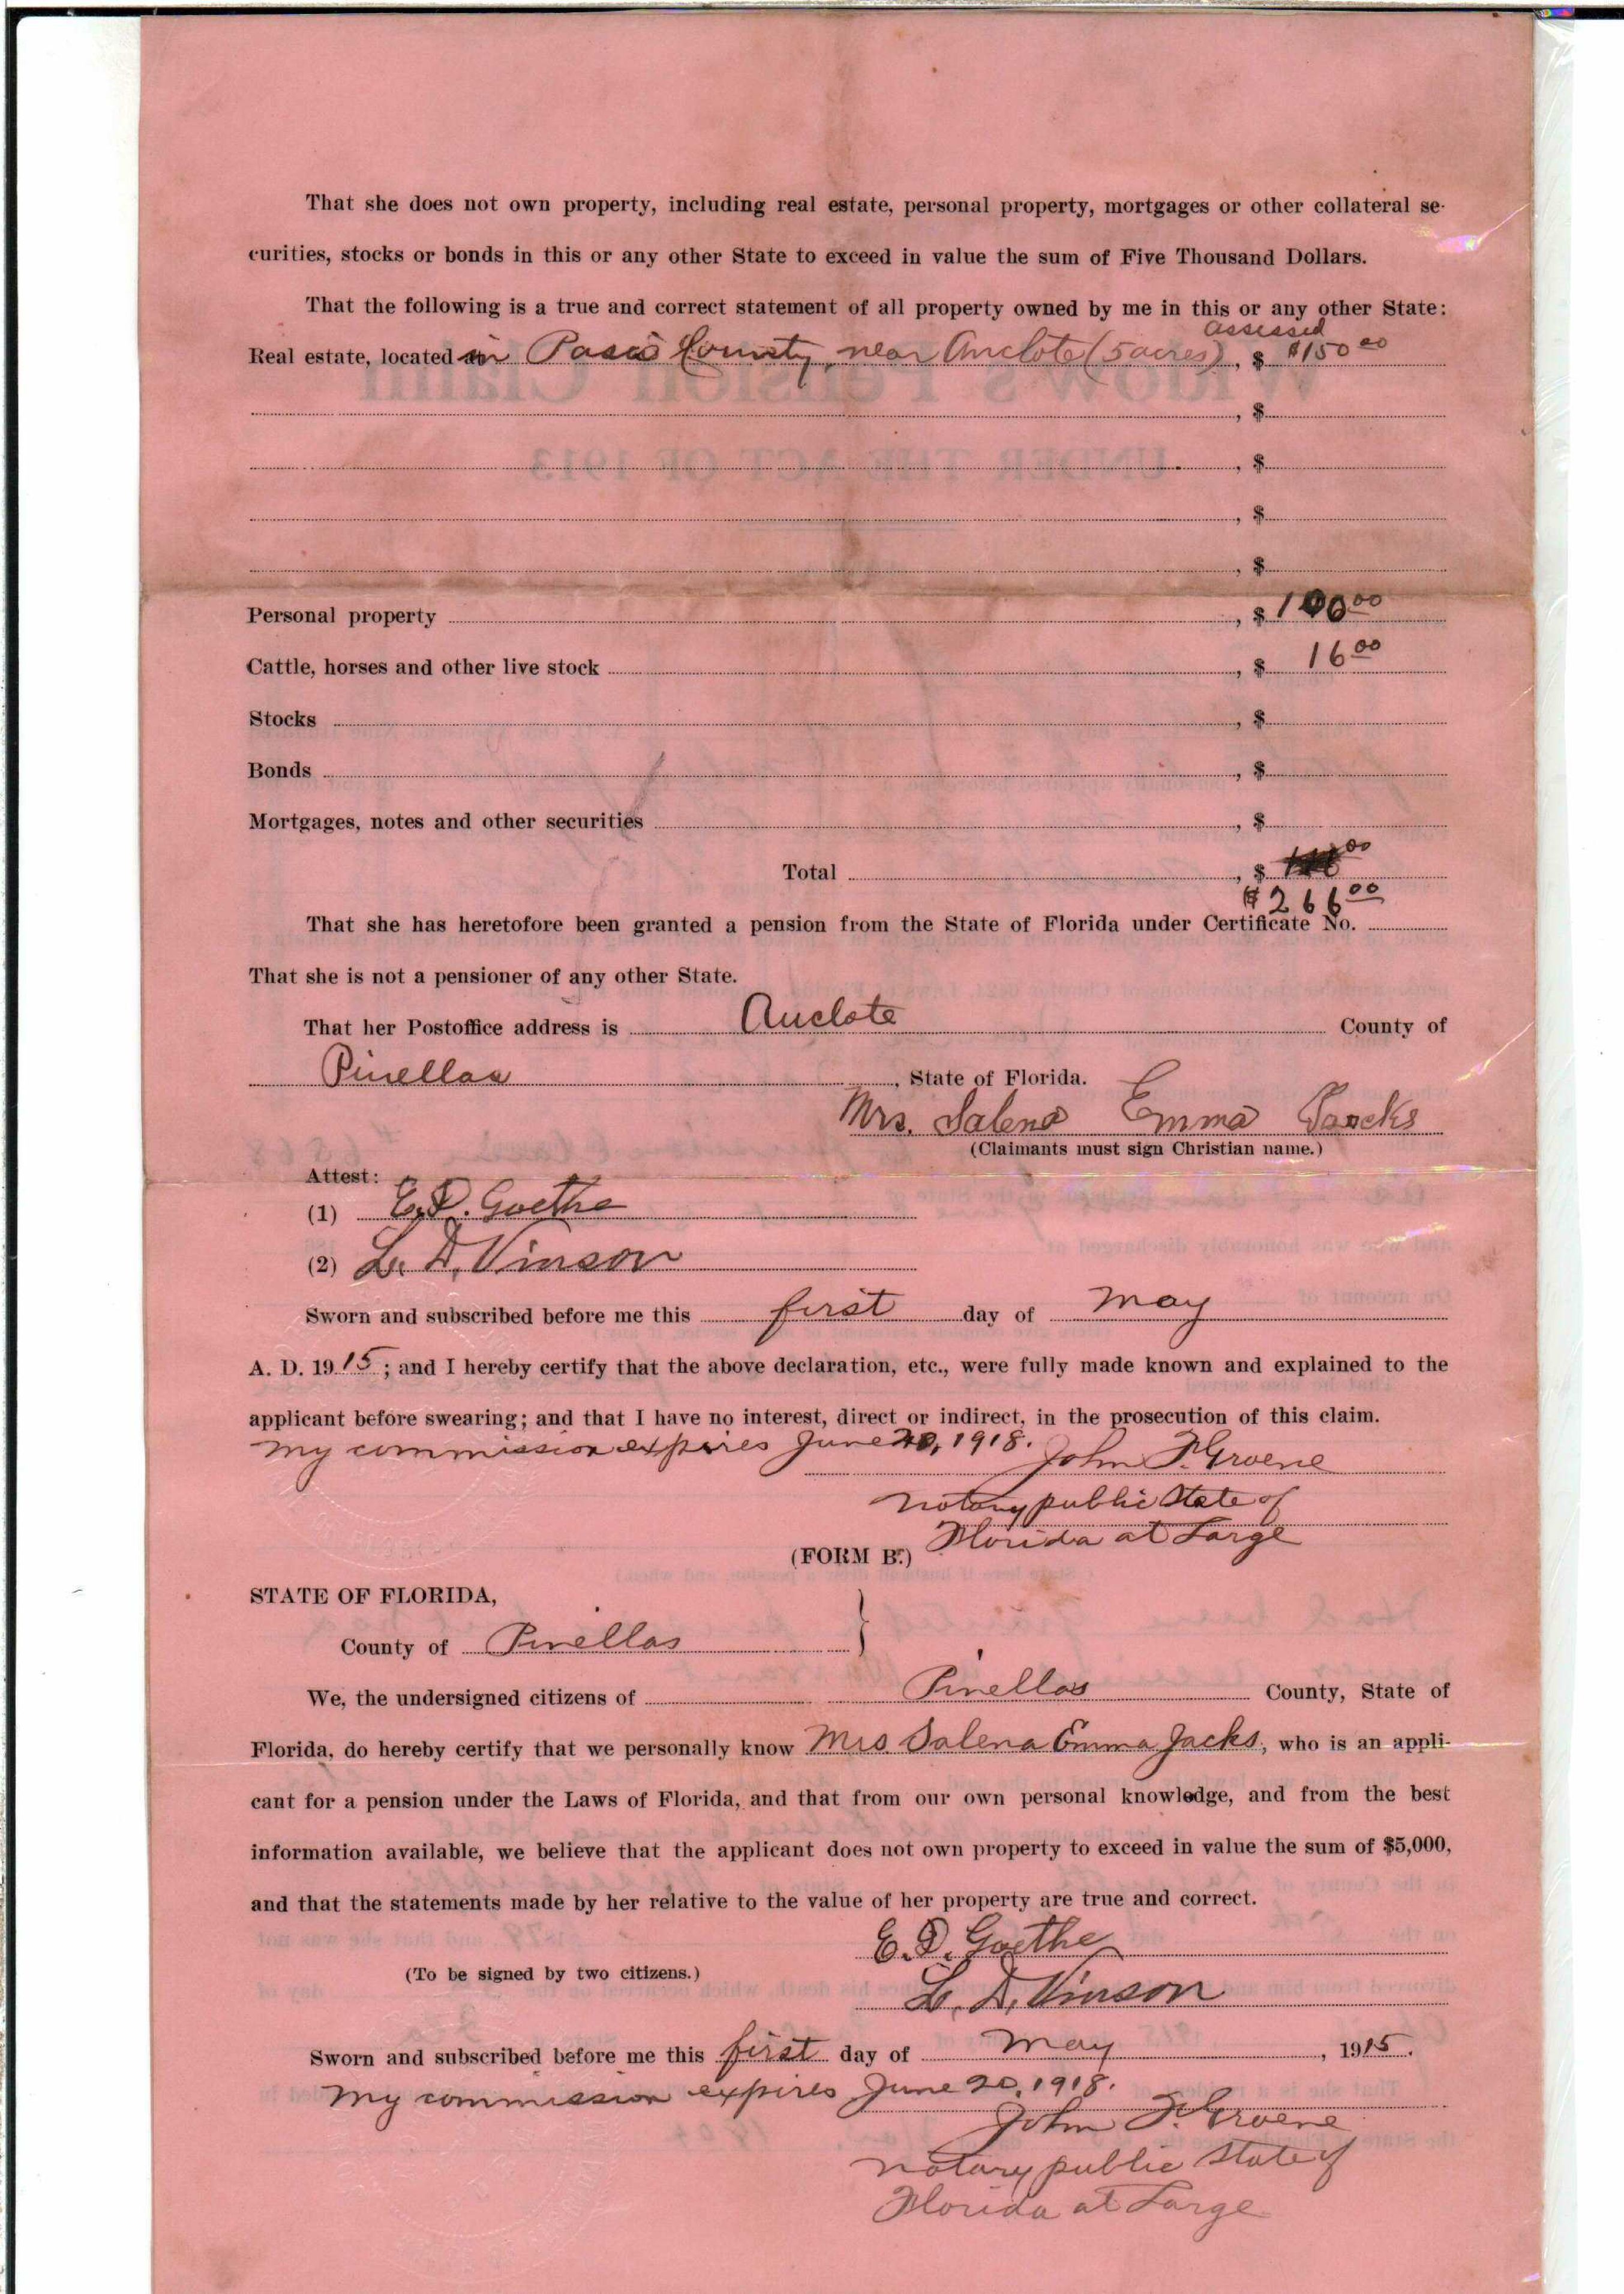 That she does not own property, including real estate, personal property, mortgages or other collateral se-
curities, stocks or bonds in this or any other State to exceed in value the sum of Five Thousand Dollars.
That the following is a true and correct statement of all property owned by me in this or any other State:
assessed
Real estate, located in Pasco County near Anclote (5 acres), $ $150 00
, $
, $
, $
, $
Personal property , $ 100 00
Cattle, horses and other live stock , $ 16 00
Stocks , $
Bonds , $
Mortgages, notes and other securities , $
Total , $ 00
$ 266 00
That she has heretofore been granted a pension from the State of Florida under Certificate No.
That she is not a pensioner of any other State.
That her Postoffice address is Anclote County of
Pinellas , State of Florida.
Mrs. Salena Emma Jacks
(Claimants must sign Christian name.)
Attest:
(1) E. D. Goethe
(2) L. D. Vinson
Sworn and subscribed before me this first day of May
A. D. 1915; and I hereby certify that the above declaration, etc., were fully made known and explained to the
applicant before swearing; and that I have no interest, direct or indirect, in the prosecution of this claim.
My commission expires June 20, 1918. John F. Groene
Notary public State of
Florida at Large
(FORM B.)
STATE OF FLORIDA,
County of Pinellas }
We, the undersigned citizens of Pinellas County, State of
Florida, do hereby certify that we personally know Mrs Salena Emma Jacks, who is an appli-
cant for a pension under the Laws of Florida, and that from our own personal knowledge, and from the best
information available, we believe that the applicant does not own property to exceed in value the sum of $5,000,
and that the statements made by her relative to the value of her property are true and correct.
E. D. Goethe
(To be signed by two citizens.)
L. D. Vinson
Sworn and subscribed before me this first day of May , 1915.
My commission expires June 20, 1918.
John F. Groene
Notary public State of
Florida at Large